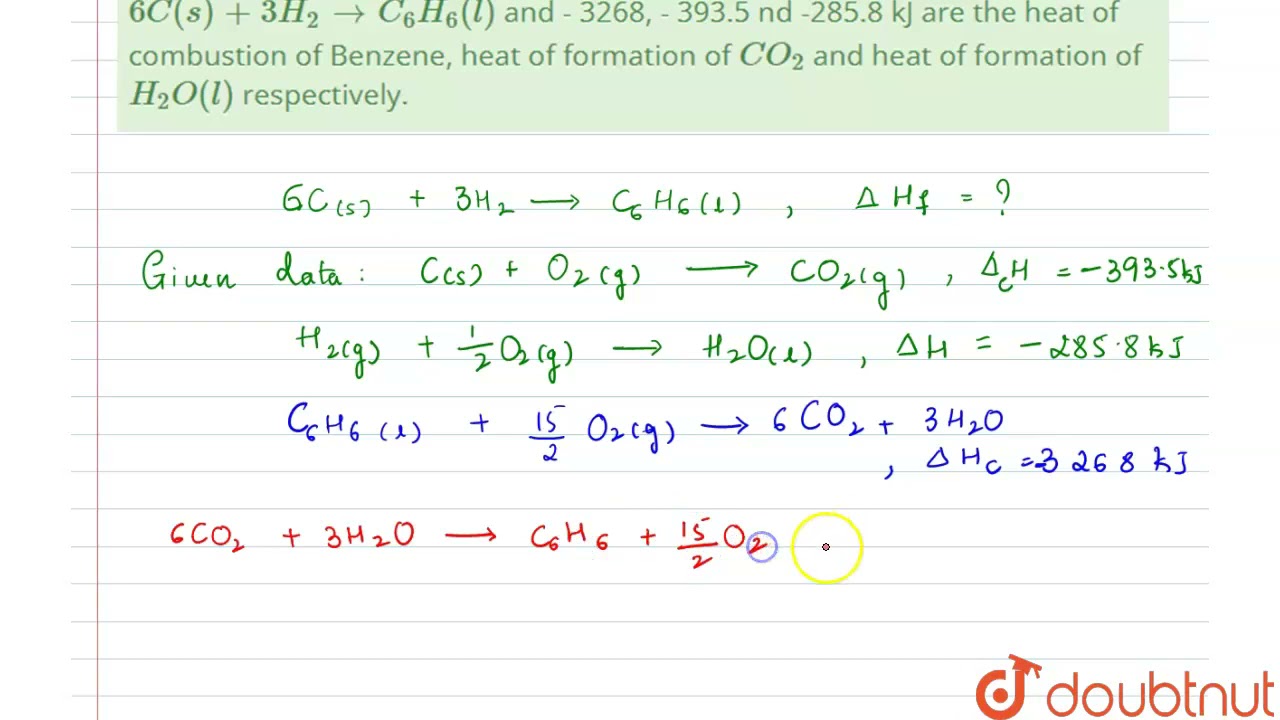 6C(s) + 3H₂ → C₆H₆(l) and - 3268, - 393.5 nd -285.8 kJ are the heat of
combustion of Benzene, heat of formation of CO₂ and heat of formation of
H₂O(l) respectively.
6C(s) + 3H₂ → C₆H₆(l) , ΔHf = ?
Given data: C(s) + O₂(g) → CO₂(g) , ΔcH = -393.5kJ
H₂(g) + 1/2 O₂(g) → H₂O(l) , ΔH = -285.8kJ
C₆H₆(l) + 15/2 O₂(g) → 6CO₂ + 3H₂O
, ΔHc = -3268 kJ
6CO₂ + 3H₂O → C₆H₆ + 15/2 O₂
doubtnut